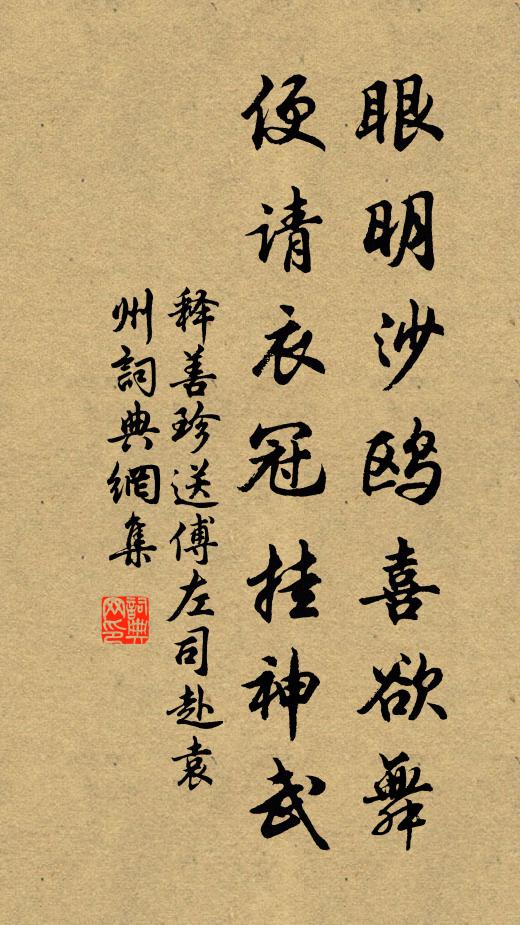 眼明沙鸥喜欲舞
便请衣冠挂神武
释善珍送傅左司赴袁
州詞典網集
詞典网印